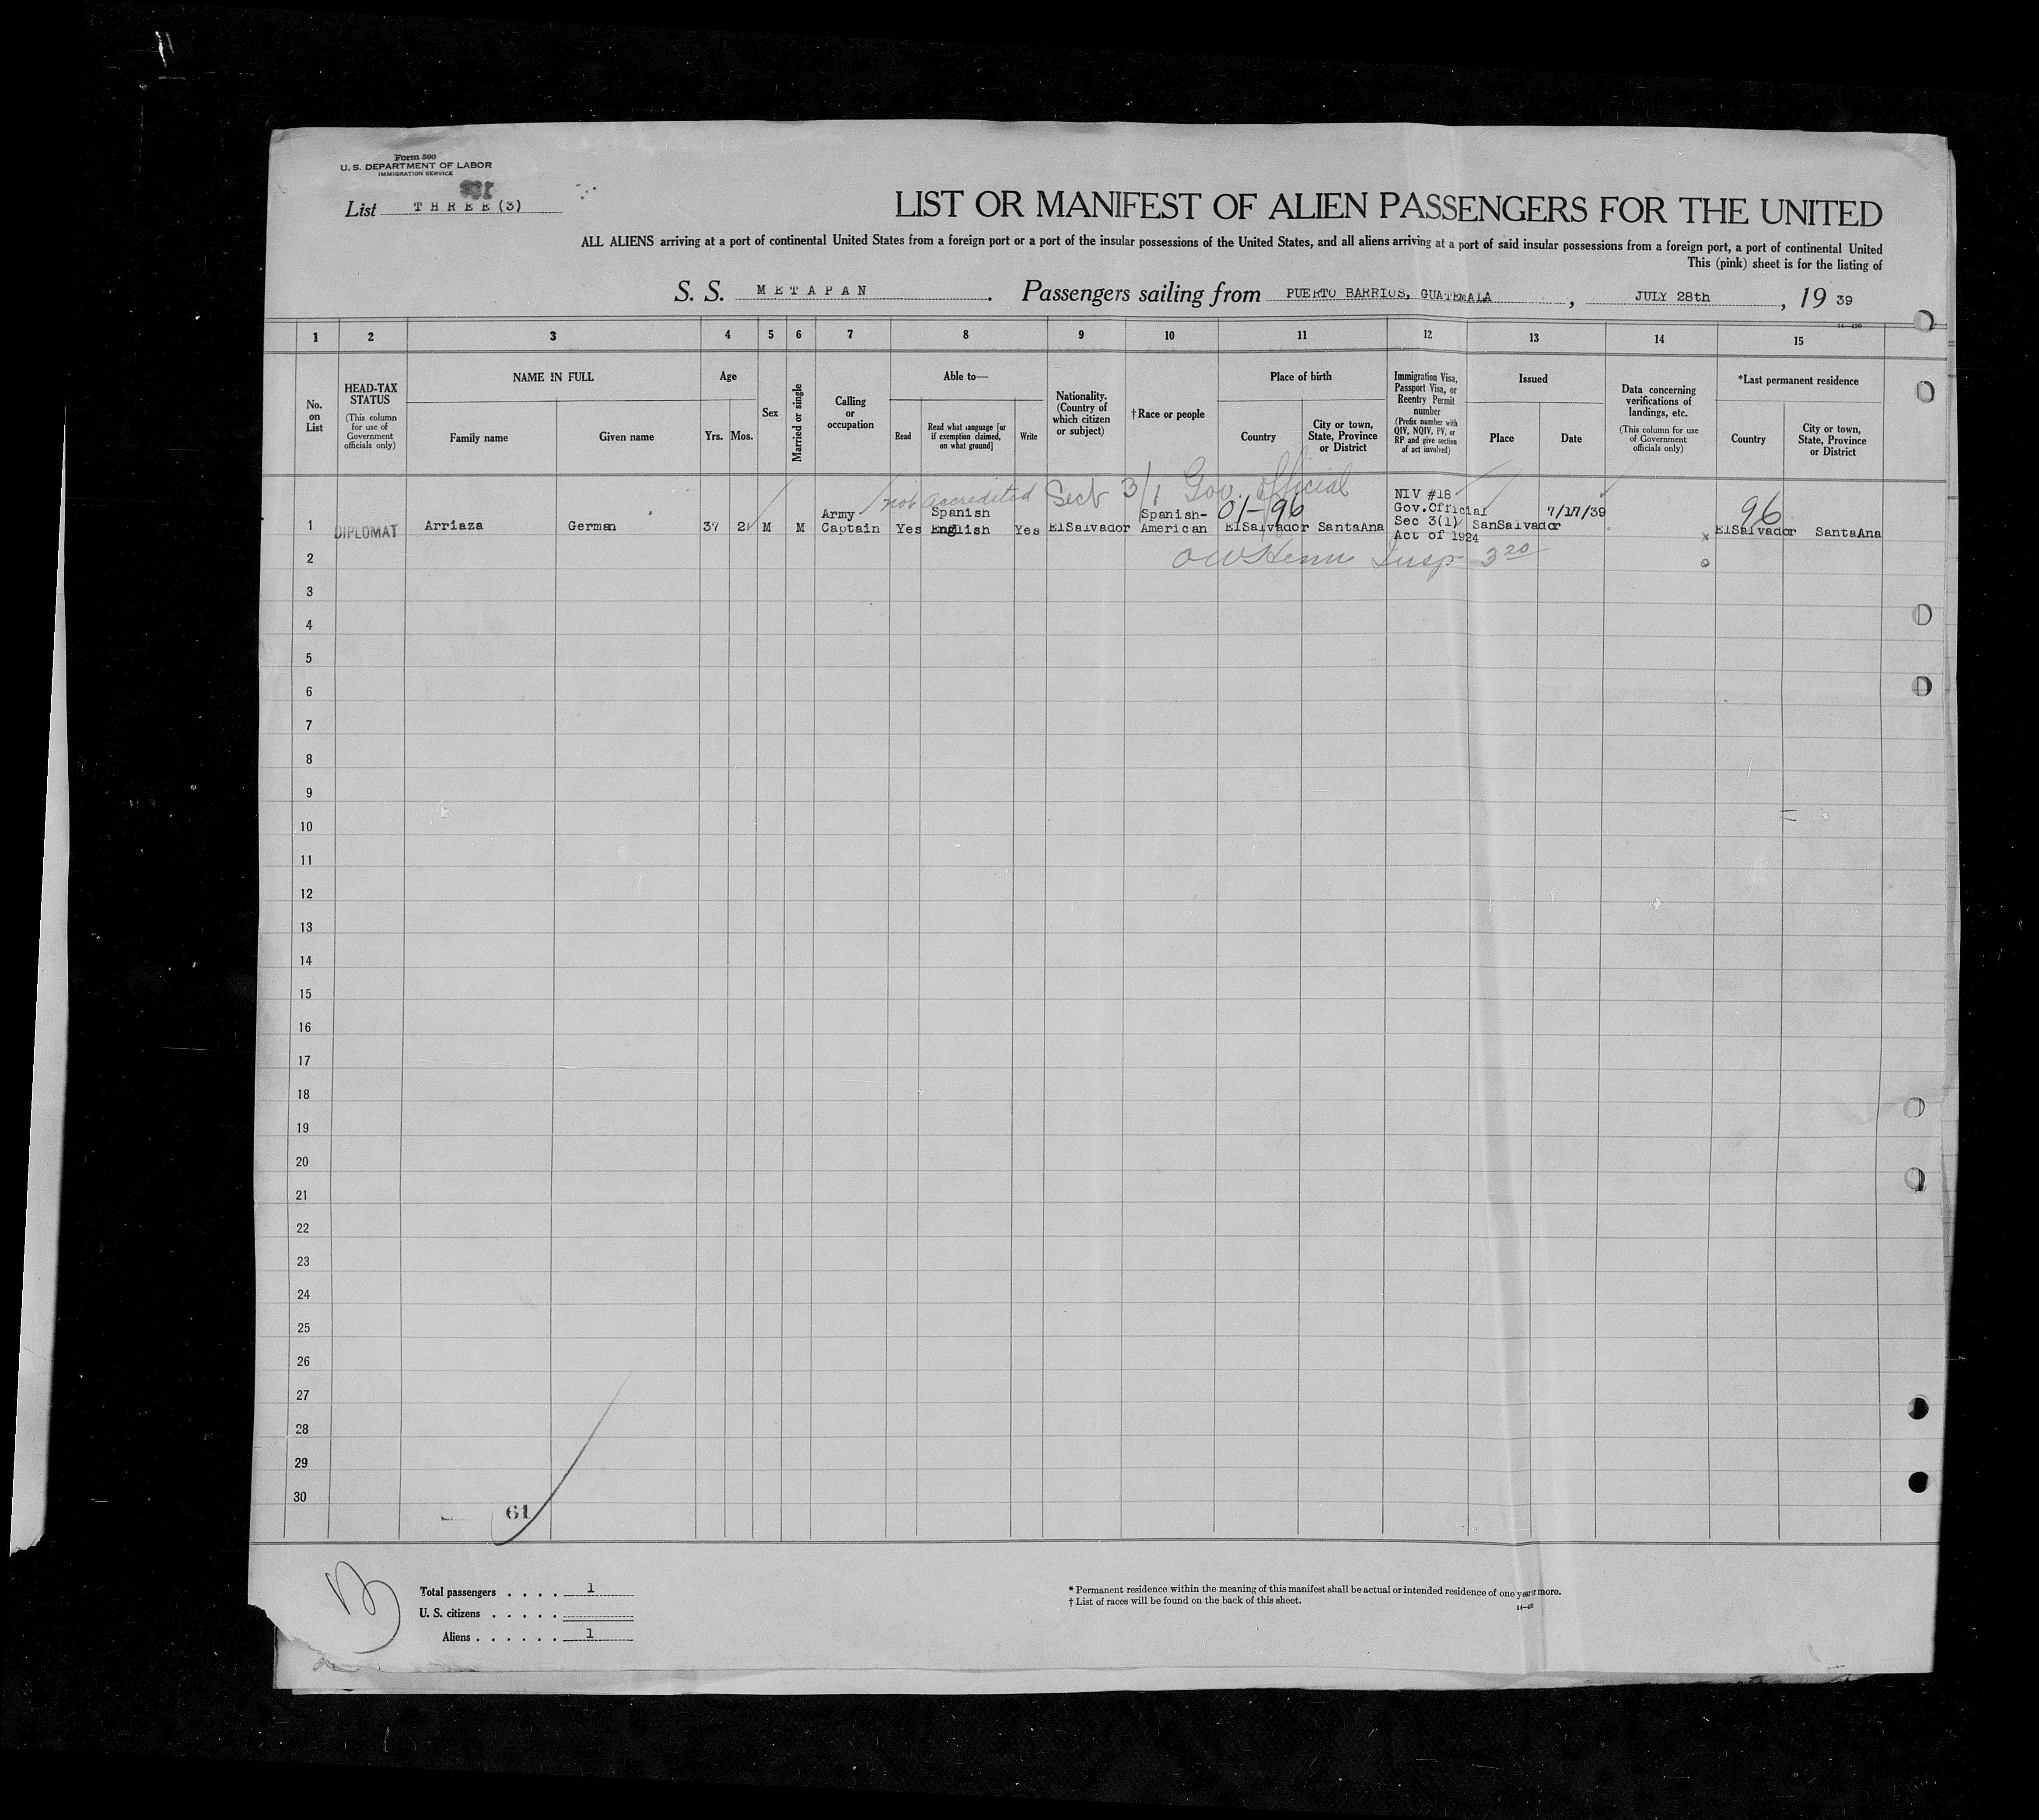 Form 500
U. S. DEPARTMENT OF LABOR
IMMIGRATION SERVICE
List THREE(3)
LIST OR MANIFEST OF ALIEN PASSENGERS FOR THE UNITED
ALL ALIENS arriving at a port of continental United States from a foreign port or a port of the insular possessions of the United States, and all aliens arriving at a port of said insular possessions from a foreign port, a port of continental United
This (pink) sheet is for the listing of
S. S. METAPAN. Passengers sailing from PUERTO BARRIOS, GUATEMALA, JULY 28th, 19 39
1 2 3 4 5 6 7 8 9 10 11 12 13 14 15
No. on List
HEAD-TAX STATUS
(This column for use of Government officials only)
NAME IN FULL
Family name
Given name
Age
Yrs. Mos.
Sex
Married or single
Calling or occupation
Able to—
Read
Read what language [or if exemption claimed, on what ground]
Write
Nationality. (Country of which citizen or subject)
†Race or people
Place of birth
Country
City or town, State, Province or District
Immigration Visa, Passport Visa, or Reentry Permit number
(Prefix number with QIV, NQIV, PV, or RP and give section of act involved)
Issued
Place
Date
Data concerning verifications of landings, etc.
(This column for use of Government officials only)
*Last permanent residence
Country
City or town, State, Province or District
not accredited Sect 3/1 Gov. Official
1 DIPLOMAT Arriaza German 37 2 M M Army Captain Yes Spanish English Yes ElSalvador Spanish-American 01-96 ElSalvador SantaAna NIV #18 Gov.Official Sec 3(1) Act of 1924 SanSalvador 7/17/39 x 96 ElSalvador SantaAna
2 Insp 3 20
3
4
5
6
7
8
9
10
11
12
13
14
15
16
17
18
19
20
21
22
23
24
25
26
27
28
29
30
61
Total passengers . . . . 1
U. S. citizens . . . . .
Aliens . . . . . . 1
* Permanent residence within the meaning of this manifest shall be actual or intended residence of one year or more.
† List of races will be found on the back of this sheet.